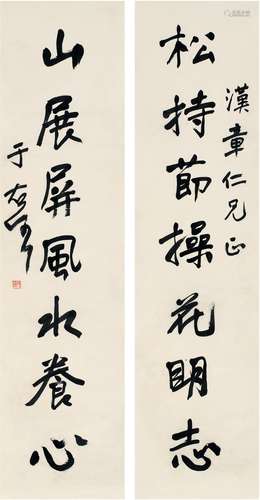 漢章仁兄正
松持節操花明志
山展屏風水養心
于右任